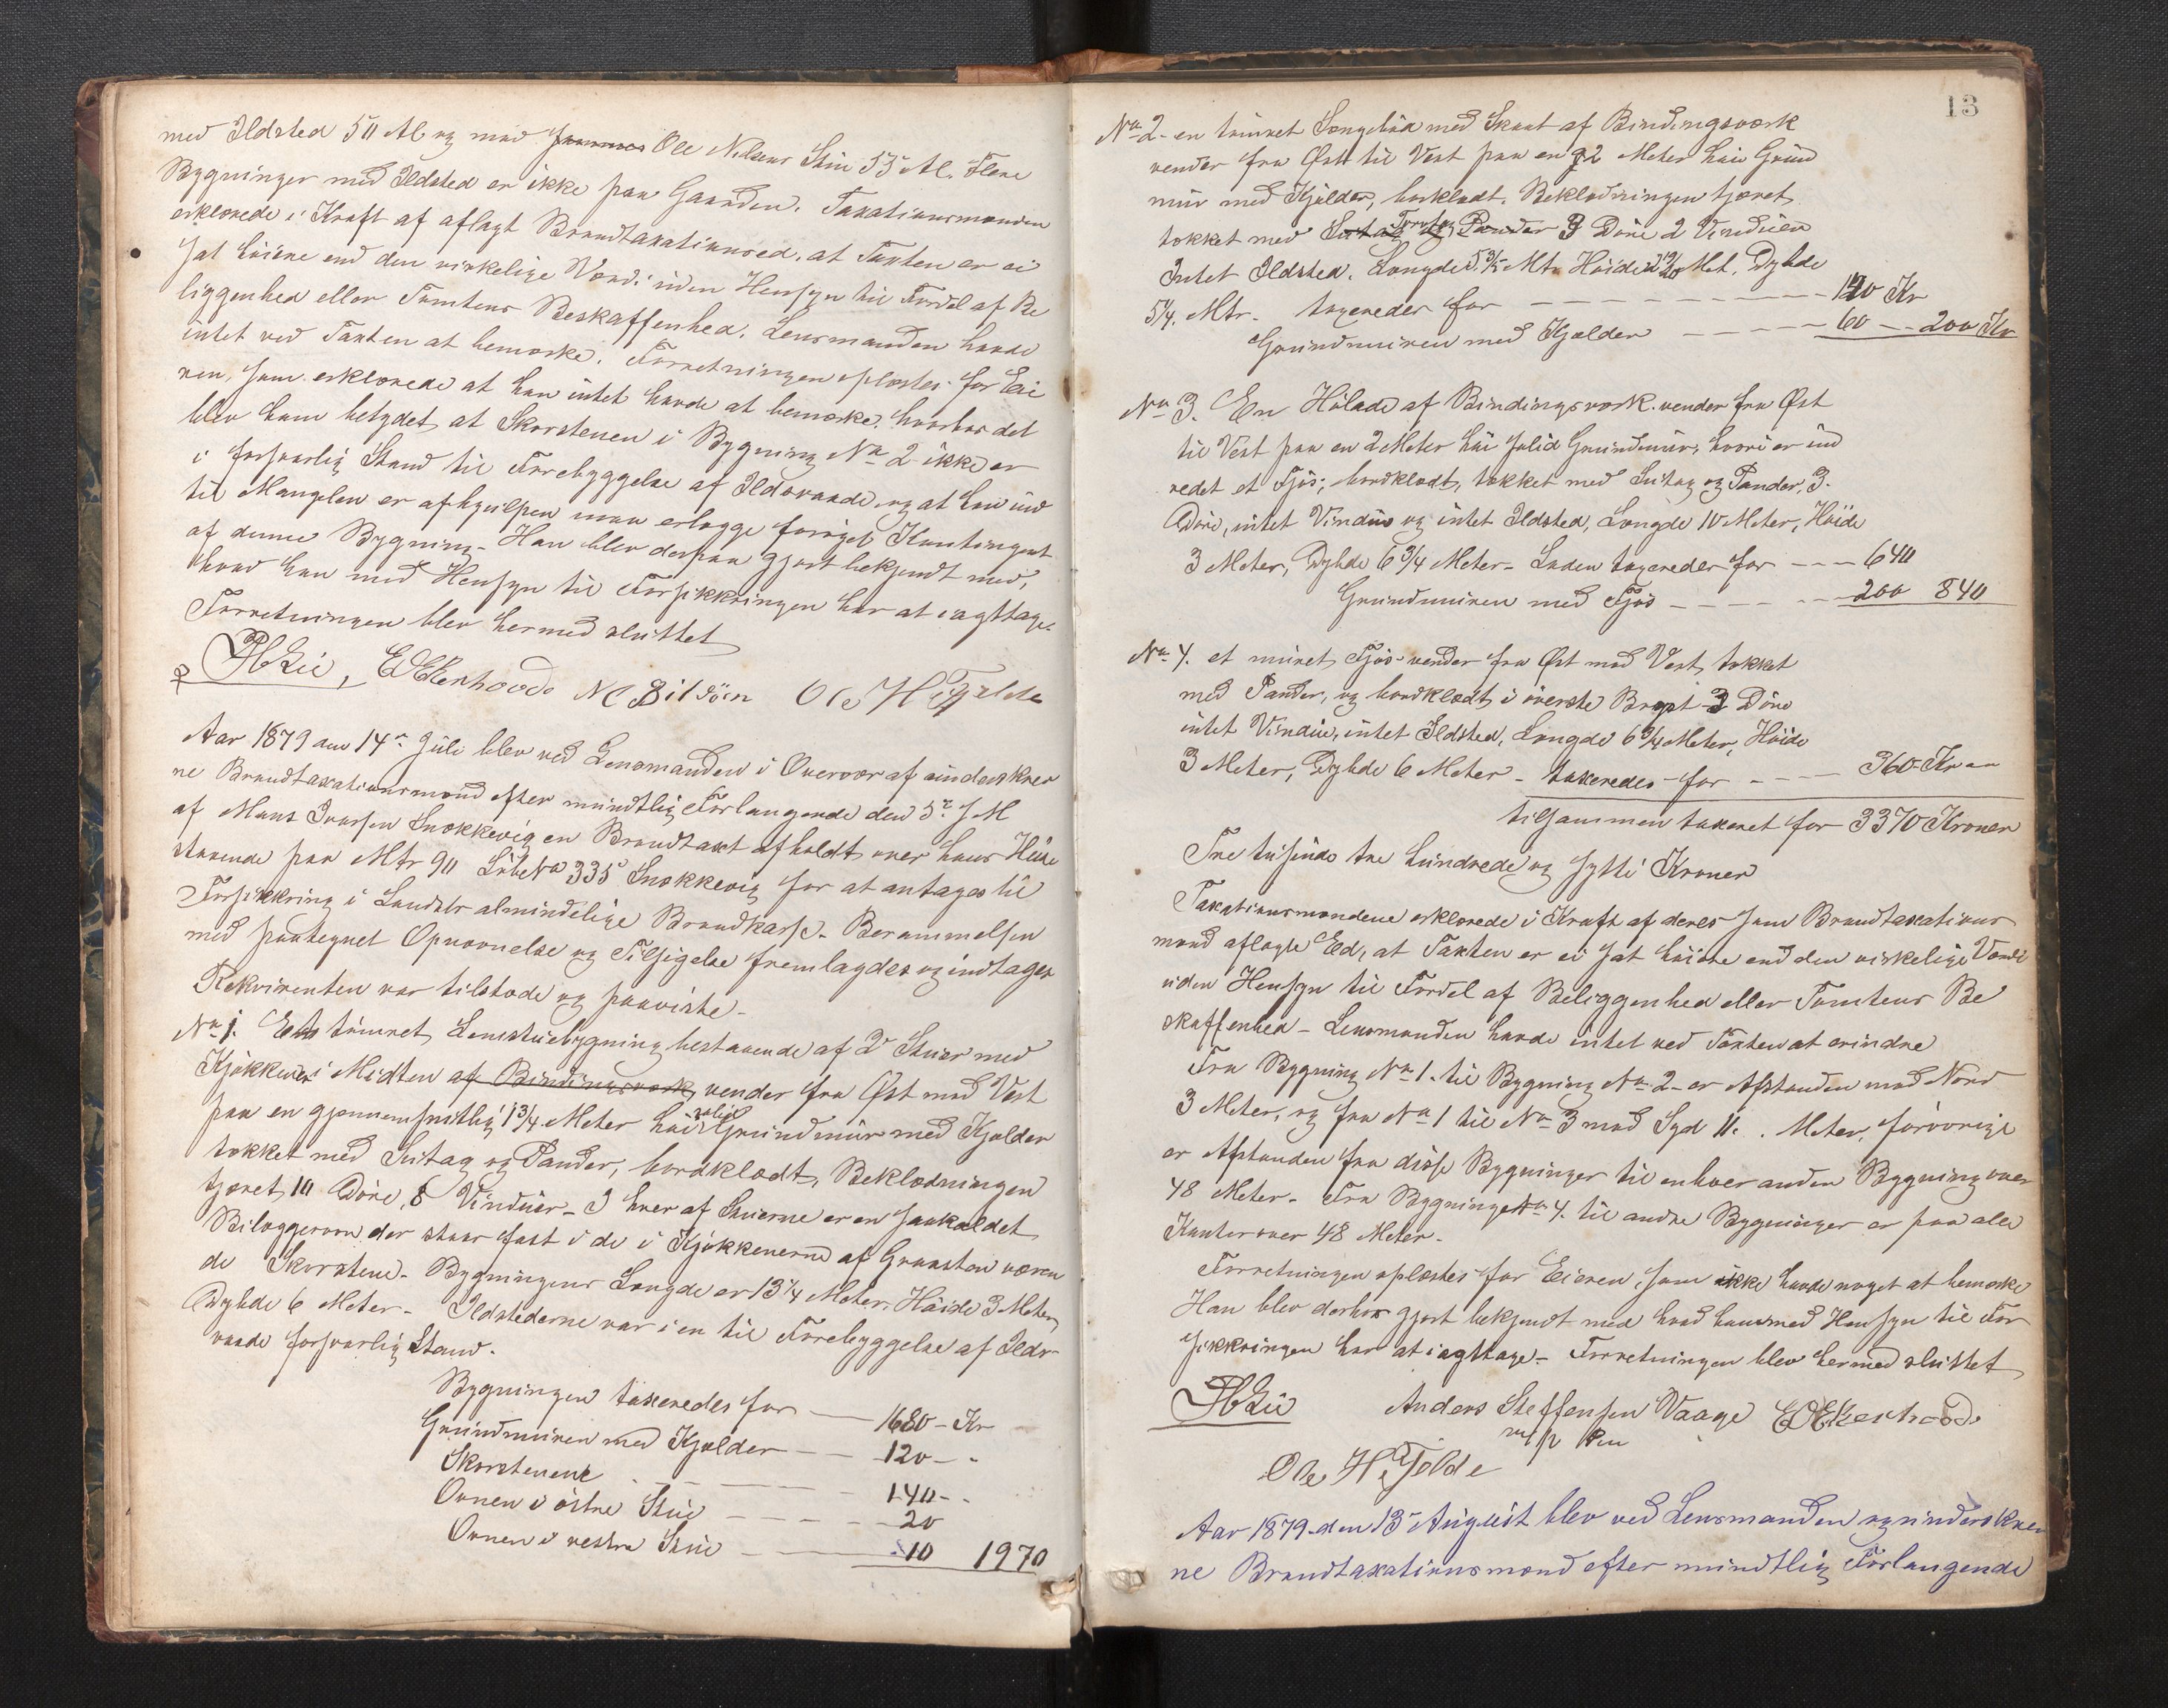 med Ildsted 50 Al og mod Ole Nilsens Stue 55 Al. Flere
Bygninger med Ildsted er ikke paa Gaarden. Taxationsmændene
erklærede i Kraft af aflagt Brandtaxationsed, at Taxten er ei
sat høiere end den virkelige Værdi uden Hensyn til Fordel af Be
liggenhed eller Tomtens Beskaffenhed. Lensmanden havde
intet ved Taxten at bemærke. Forretningen oplæstes for Eie
ren, som erklærede at han intet havde at bemærke. hvorhos det
blev ham betydet at Skorstenen i Bygning No 2 ikke er
i forsvarlig Stand til Forebyggelse af Ildsvaade, og at han ind
til Mangelen er afhjulpen maa erlægge forøget Kontingent
af denne Bygning - Han blev derpaa gjort bekjendt med,
hvad han med Hensyn til Forsikkringen har at iagttage.
Forretningen blev hermed sluttet
NC Bildøen Ole H. Gjelde
Aar 1879 den 14de Juli blev ved Lensmanden i Overvær af underskrev
ne Brandtaxationsmænd efter mundtlig Forlangende den 5te s M
af Mons Ivarsen Snekkevig en Brandtaxt afholdt over hans Huse
staaende paa Mtr 90 Løbe No 335 Snekkevig for at antages til
Forsikkring i Landets almindelige Brandkasse. Berammelsen
med paategnet Opnævnelse og Tilsigelse fremlagdes og indtages
Rekvirenten var tilstede og paaviste -
No 1. Et tømret Lemstuebygning bestaaende af 2 Stuer med
Kjøkkener i Midten af Bindingsværk, vender fra Øst mod Vest
paa en gjennemsnitlig 1 3/4 Meter høi solid Grundmur med Kjælder
tækket med Sutag og Pander, bordklædt, Beklædningen
tjæret, 10 Døre, 8 Vinduer - I hver af Stuerne er en saakaldet
Bilæggerovn der staar fast i de i Kjøkkenerne af Graasten væren
de Skorstene - Bygningens Længde er 13 1/4 Meter, Høide 3 Meter,
Dybde 6 Meter - Ildstederne var i en til Forebyggelse af Ilds-
vaade forsvarlig Stand.
Bygningen taxeredes for — 1680 - Kr
Grundmuren med Kjælder — 120 - -
Skorstenene — 140 - -
Ovnen i østre Stue — 20
Ovnen i vestre Stue — 10 1970
13
No 2 - en tømret Længebod med Skaat af Bindingsværk
vender fra Øst til Vest paa en 2 Meter høi Grund
mur med Kjælder, bordklædt, Beklædningen tjæret
tækket med Sutag Torv og Pander 3 Døre 2 Vinduer
Intet Ildsted. Længde 5 3/5 Mtr. Høide Met, Dybde
5 1/4. Mtr. taxeredes for — 140 Kr
Grundmuren med Kjælder — 60 — 200 Kr
No 3. En Hølade af Bindingsværk vender fra Øst
til Vest paa en 2 Meter høi solid Grundmur, hvori er ind
redet et Fjøs; bordklædt, tækket med Sutag og Pander, 3
Døre, intet Vindue og intet Ildsted, Længde 10 Meter, Høide
3 Meter, Dybde 6 3/4 Meter - Laden taxeredes for — 640
Grundmuren med Fjøs — 200 840
No 4. et muret Fjøs vender fra Øst mod Vest, tækket
med Pander, og bordklædt i øverste Brøst 3 Døre
intet Vindue, intet Ildsted, Længde 6 3/4 Meter, Høide
3 Meter, Dybde 6 Meter - taxeredes for — 360 Kr
tilsammen taxeret for 3370 Kroner
Tre tusinde tre hundrede og sytti Kroner
Taxationsmændene erklærede i Kraft af deres som Brandtaxations
mænd aflagte Ed, at Taxten er ei sat høiere end den virkelige Værdi
uden Hensyn til Fordel af Beliggenhed eller Tomtens Be
skaffenhed - Lensmanden havde intet ved Taxten at erindre
Fra Bygning No 1. til Bygning No 2 - er Afstanden mod Nord
3 Meter, og fra No 1 til No 3 mod Syd 11. Meter, forøvrigt
er Afstanden fra disse Bygninger til enhver anden Bygning over
48 Meter - Fra Bygningen No 4. til andre Bygninger er paa alle
Kanter over 48 Meter -
Forretningen oplæstes for Eieren, som ikke havde noget at bemærke
Han blev derhos gjort bekjendt med hvad han med Hensyn til For
sikkringen har at iagttage - Forretningen blev hermed sluttet
Anders Steffensen Vaage
m/p Pen
Ole H. Gjelde
Aar 1879 den 13de August blev ved Lensmanden og underskrev
ne Brandtaxationsmænd efter mundtlig Forlangende